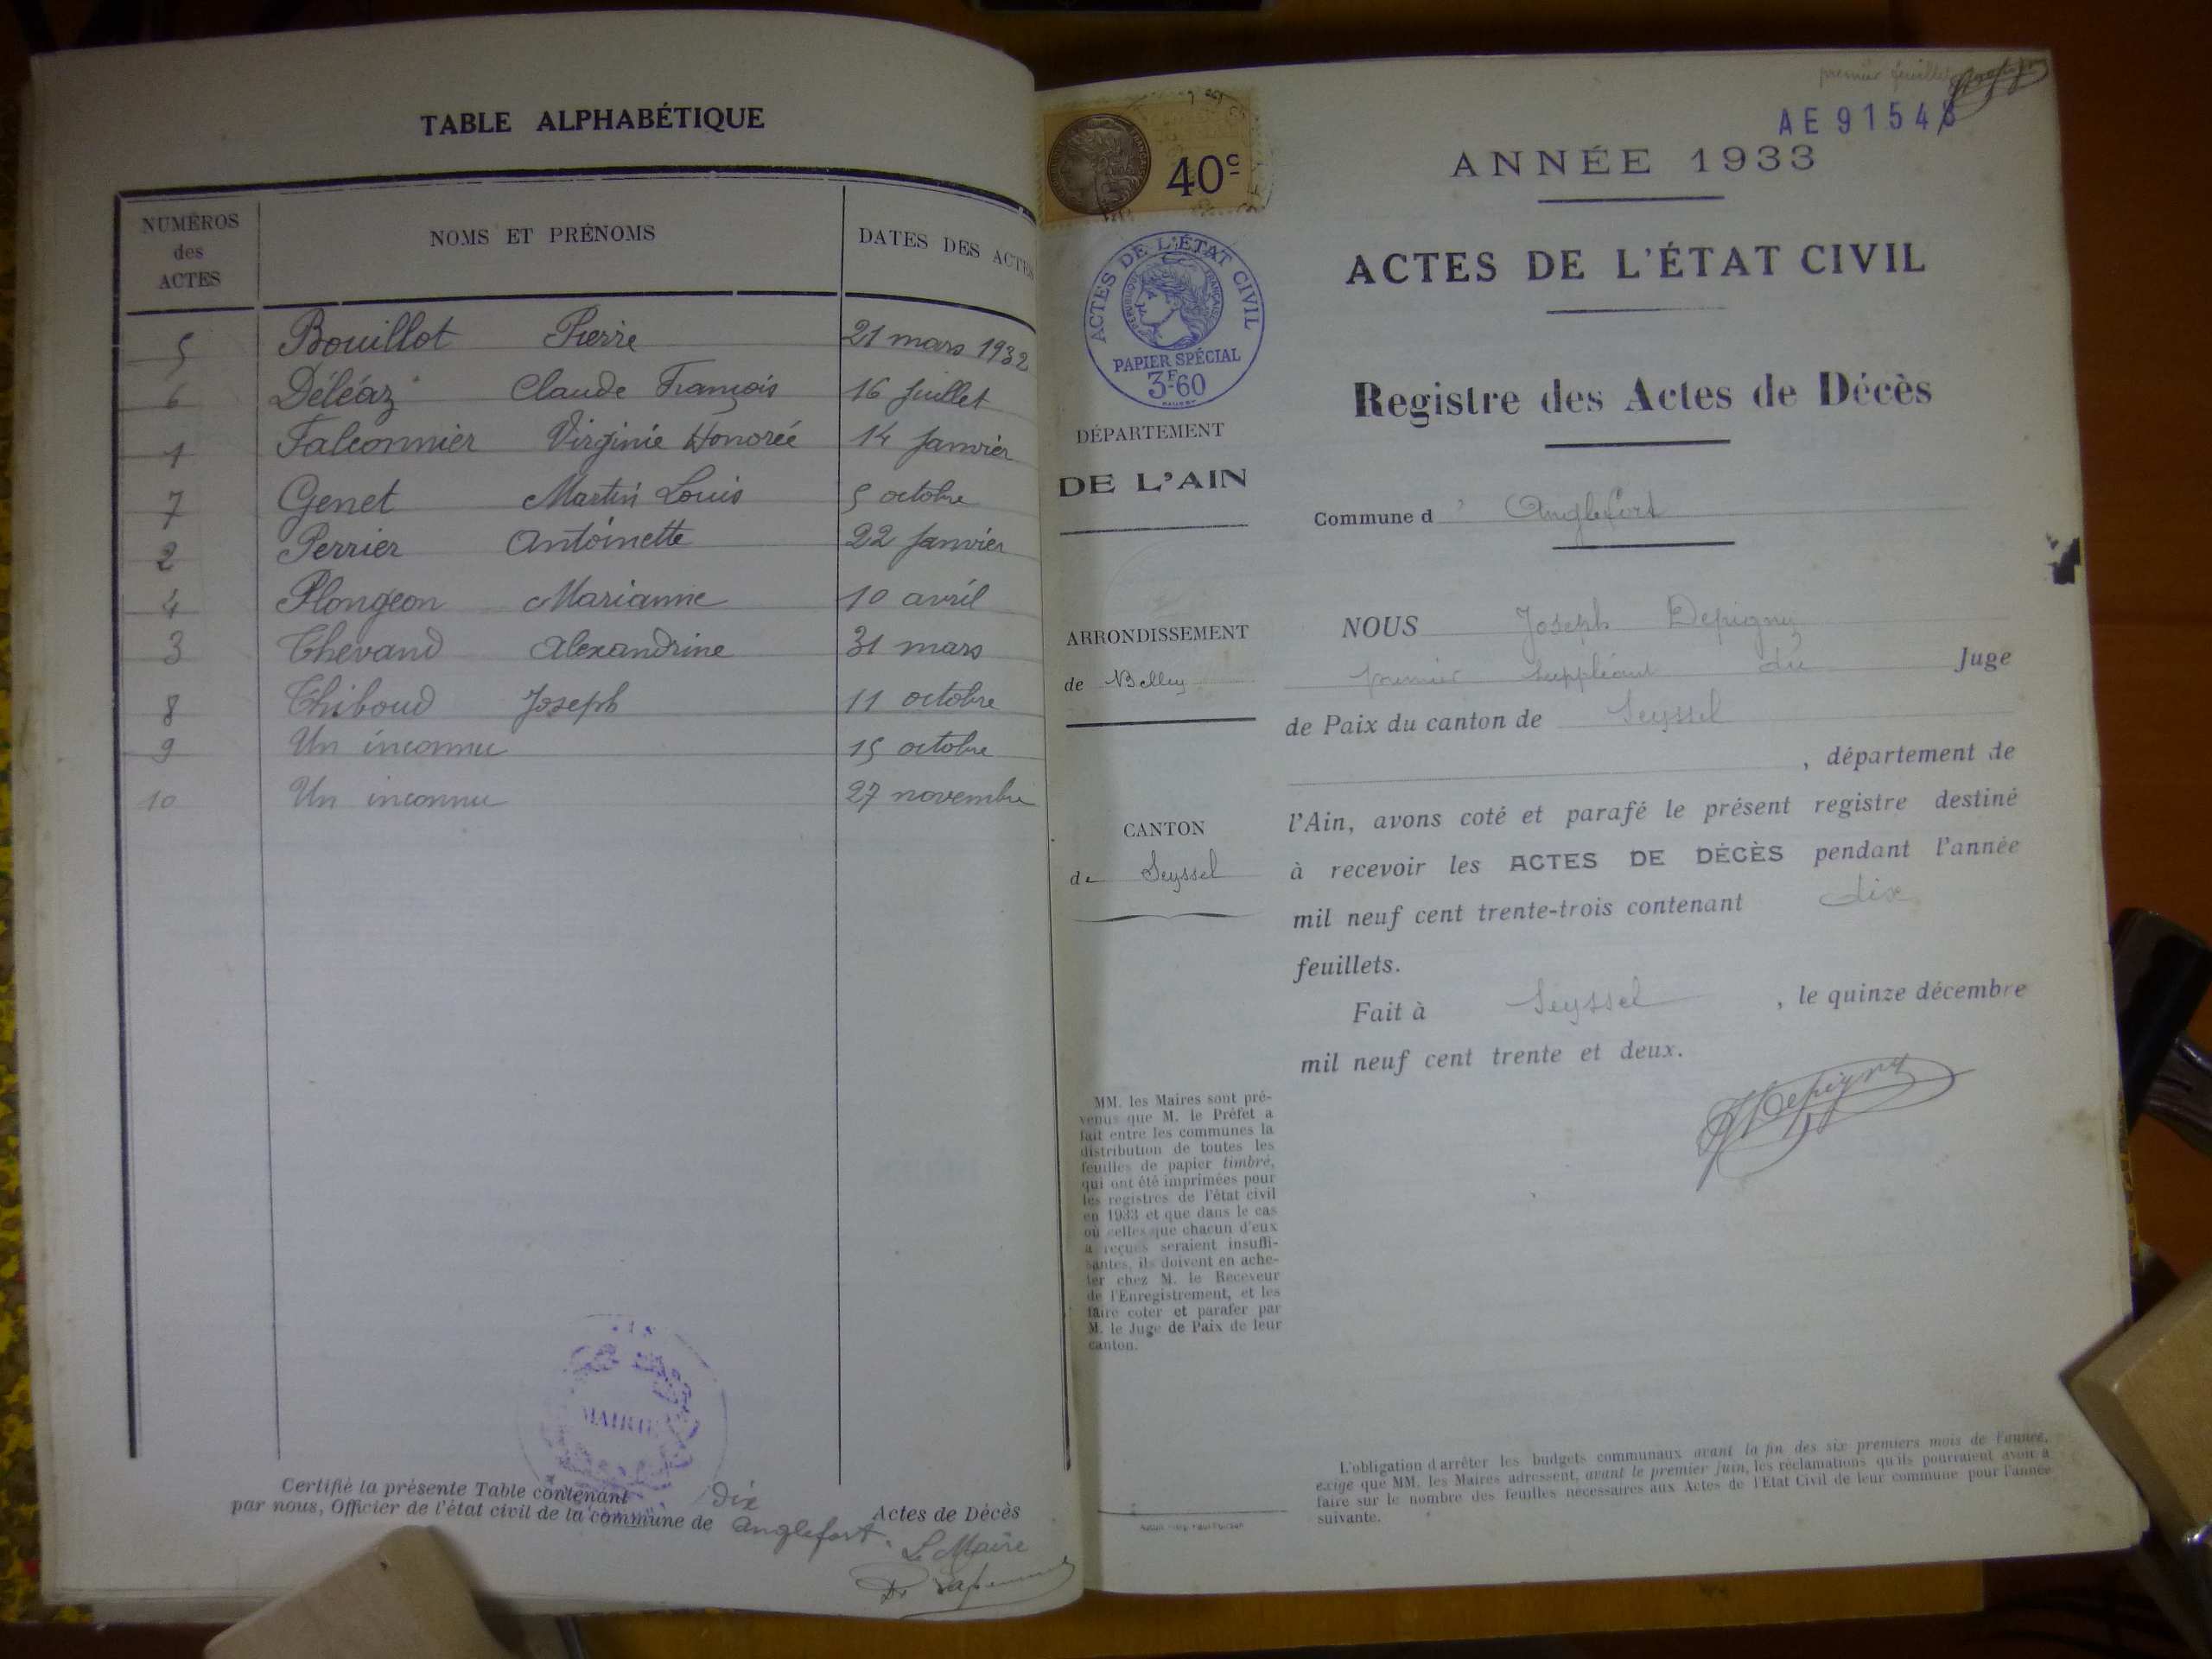 TABLE ALPHABÉTIQUE
NUMÉROS des ACTES NOMS ET PRÉNOMS DATES DES ACTES
5 Bouillot Pierre 21 mars 1932
6 Déléaz Claude François 16 juillet
1 Falconnier Virginie Honorée 14 janvier
7 Genet Martin Louis 5 octobre
2 Perrier Antoinette 22 janvier
4 Plongeon Marianne 10 avril
3 Thevand Alexandrine 31 mars
8 Thiboud Joseph 11 octobre
9 Un inconnu 15 octobre
10 Un inconnu 27 novembre
MAIRIE
Certifié la présente Table contenant dix Actes de Décès
par nous, Officier de l'état civil de la commune de Anglefort.
Le Maire
40c
ACTES DE L'ÉTAT CIVIL
RÉPUBLIQUE FRANÇAISE
PAPIER SPÉCIAL
3F60
DÉPARTEMENT
DE L'AIN
ARRONDISSEMENT
de Belley
CANTON
de Seyssel
MM. les Maires sont pré-
venus que M. le Préfet a
fait entre les communes la
distribution de toutes les
feuilles de papier timbré,
qui ont été imprimées pour
les registres de l'état civil
en 1933 et que dans le cas
où celles que chacun d'eux
a reçues seraient insuffi-
santes, ils doivent en ache-
ter chez M. le Receveur
de l'Enregistrement, et les
faire coter et parafer par
M. le Juge de Paix de leur
canton.
premier feuillet
AE 91548
ANNÉE 1933
ACTES DE L'ÉTAT CIVIL
Registre des Actes de Décès
Commune d'Anglefort
NOUS Joseph Depigny
premier suppléant du Juge
de Paix du canton de Seyssel
, département de
l'Ain, avons coté et parafé le présent registre destiné
à recevoir les ACTES DE DÉCÈS pendant l'année
mil neuf cent trente-trois contenant dix
feuillets.
Fait à Seyssel, le quinze décembre
mil neuf cent trente et deux.
Depigny
L'obligation d'arrêter les budgets communaux avant la fin des six premiers mois de l'année,
exige que MM. les Maires adressent, avant le premier Juin, les réclamations qu'ils pourraient avoir à
faire sur le nombre des feuilles nécessaires aux Actes de l'Etat Civil de leur commune pour l'année
suivante.